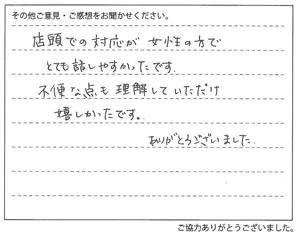 その他ご意見・ご感想をお聞かせください。
店頭での対応が 女性の方で
とても話しやすかったです。
不便な点も理解していただけ
嬉しかったです。
ありがとうございました。
ご協力ありがとうございました。